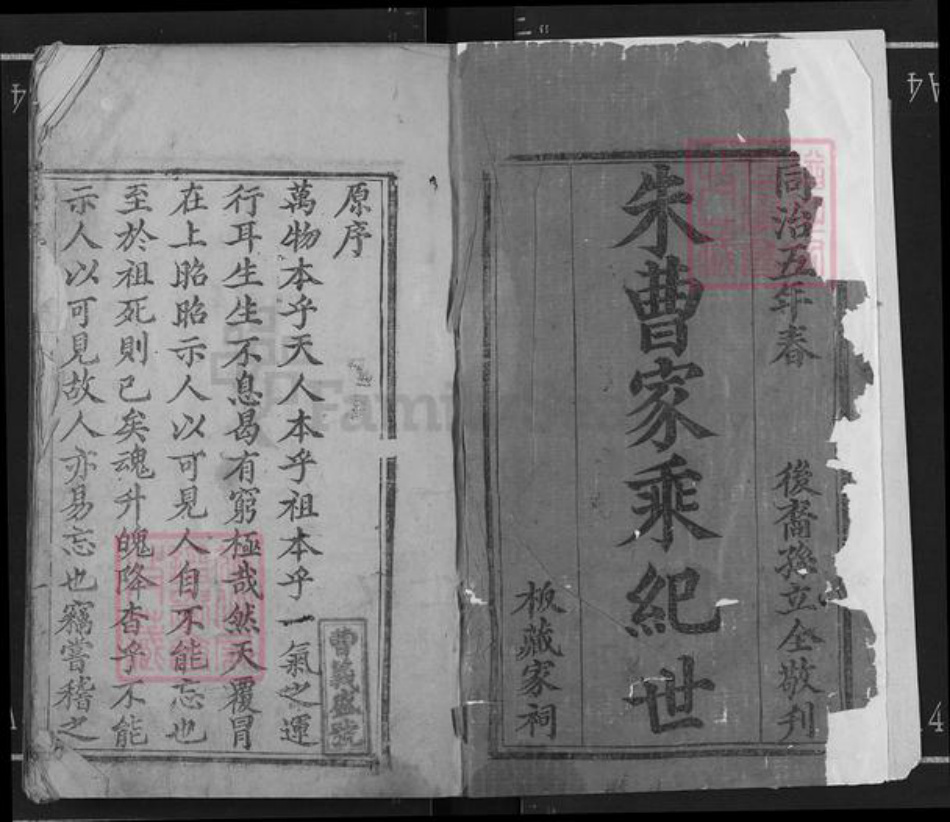 同治五年春 後裔孫立全敬刊
朱曹家乘紀世
板藏家祠
原序
萬物本乎天人本乎祖本乎一氣之運
行耳生生不息曷有窮極哉然天覆冒
在上昭昭示人以可見人自不能忘也
至於祖死則已矣魂升魄降杳乎不能
示人以可見故人亦易忘也竊嘗稽之
曹義盛號
Famil